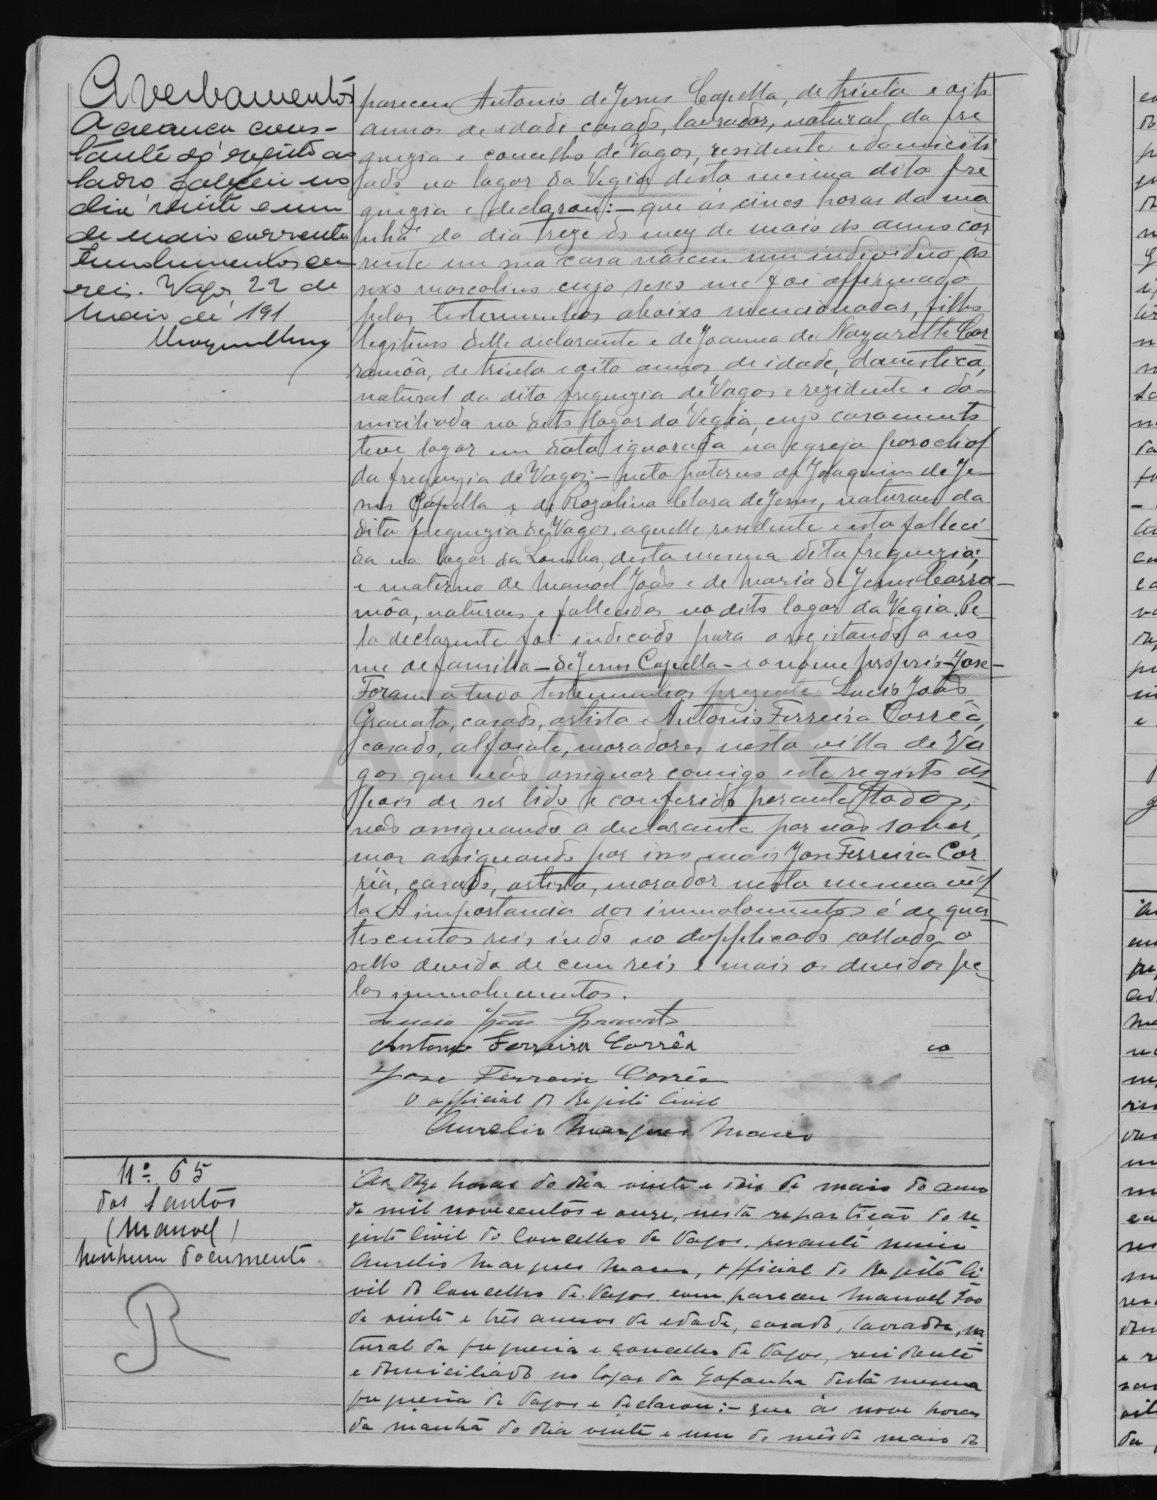 Averbamentos
A creança cons-
tante do registo ao
lado faleceu no
dia vinte e um
de maio corrente
Emolumentos cem
reis. Vagos, 22 de
Maio de 191
pareceu Antonio de Jesus Capella, de trinta e oito
annos de idade casado, lavrador, natural da fre
guezia e concelho de Vagos, residente e domicili
ado no lugar da Vegia desta mesma dita fre
guezia e declarou:- que ás cinco horas da ma
nhã do dia treze do mez de maio do anno cor
rente em sua casa nasceu um individuo do
sexo mascolino cujo sexo me foi affirmado
pelas testemunhas abaixo mencionadas, filho
legitimo delle declarante e de Joanna de Nazareth Car
ramôa, de trinta e oito annos de idade, domestica,
natural da dita freguezia de Vagos e rezidente e do-
miciliada no dito lugar da Vegia, cujo casamento
teve lugar em data ignorada na egreja parochial
da freguezia de Vagos;- neto paterno de Joaquim de Je-
sus Capella e de Rozalina Clara de Jesus, naturaes da
dita freguezia de Vagos, aquelle residente e esta falleci
da no lugar da Lomba, desta mesma dita freguezia;
e materno de Manoel João e de Maria de Jesus Carra-
môa, naturaes e fallecidos no dito lugar da Vegia. Pe-
lo declarante foi indicado para o registando o no
me de familia - de Jesus Capella - e o nome proprio - José -
Foram a tudo testemunhas prezentes Lucio João
Gravato, casado, artista e Antonio Ferreira Corrêa,
casado, alfaiate, moradores nesta villa de Va
gos que vão assignar comigo este registo de
pois de ser lido e conferido perante todos,
não assignando o declarante por não saber,
mas assignando por isso mais José Ferreira Cor
rêa, casado, artista, morador nesta mesma vil
la. A importancia dos immolumentos é de qua
trocentos reis indo no dupplicado collado o
sello devido de cem reis e mais os devidos pe
los immolumentos.
Lucio João Gravato
Antonio Ferreira Corrêa
Jose Ferreira Corrêa
O official do Registo Civil
Aurelio Marques Mano
Nº 65
dos Santos
(Manoel)
Nenhum documento
R
Ás doze horas do dia vinte e dois de maio do anno
de mil novecentos e onze, nesta repartição do re
gisto civil do Concelho de Vagos, perante mim
Aurelio Marques Mano, official do Registo Ci
vil do Concelho de Vagos, compareceu Manoel João
de vinte e três annos de edade, casado, lavrador, na
tural da freguesia e concelho de Vagos, residente
e domiciliado no lugar da Gafanha desta mesma
freguesia de Vagos e declarou:- que ás nove horas
da manhã do dia vinte e um do mês de maio do
ADAVR